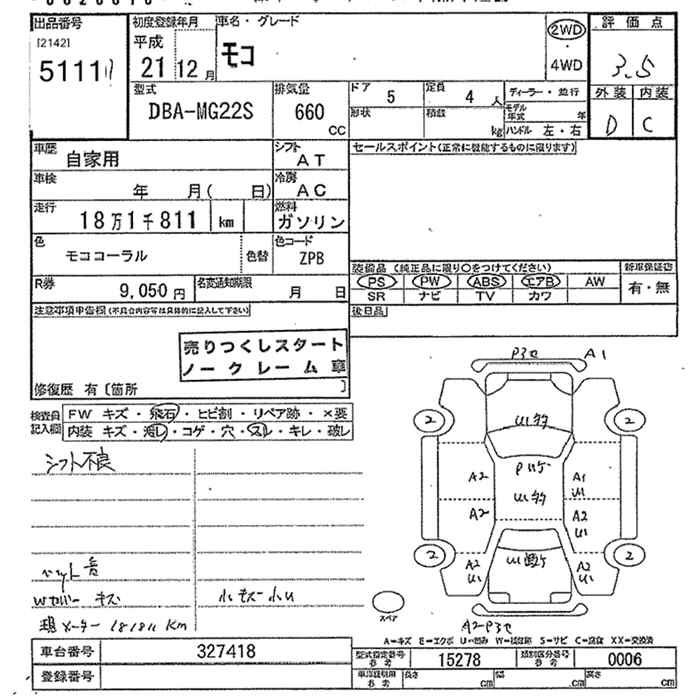 出品番号 初度登録年月 車名・グレード 評価点
[2142] 平成 モコ 2WD
5111 21 12月 4WD 3.5
型式 排気量 ドア 5 定員 4人 ディーラー・並行 外装 内装
DBA-MG22S 660 CC 形状 積数 kg モデル年式 年 D C
ハンドル 左・右
車歴 自家用 シフト AT セールスポイント(正常に機能するものに限ります)
車検 年 月( 日) 冷房 AC
走行 18万1千811 km 燃料 ガソリン
色 モココーラル 色替 色コード ZPB
装備品 (純正品に限り○をつけてください) 新車保証書
R券 9,050円 名変通知期限 月 日 PS PW ABS エアB AW 有・無
SR ナビ TV カワ
注意事項申告欄(不具合内容等は具体的に記入して下さい) 後日品
売りつくしスタート
ノークレーム車
修復歴 有〔箇所 〕
検査員 FW キズ・飛石・ヒビ割・リペア跡・×要
記入欄 内装 キズ・汚レ・コゲ・穴・スレ・キレ・破レ
シフト不良
Wカバー キズ 小キズ小U
メーター 181811 Km
P3セ A1
2 2
A2 A1
U1
A2 A2
U1
2 2
A2 U1 A2 U1
スペア
A2P3セ
A=キズ E=エクボ U=凹み W=補修跡 S=サビ C=腐食 XX=交換済
車台番号 327418 型式指定番号 参考 15278 類別区分番号 参考 0006
登録番号 車検証引用 参考 長さ cm 幅 cm 高さ cm